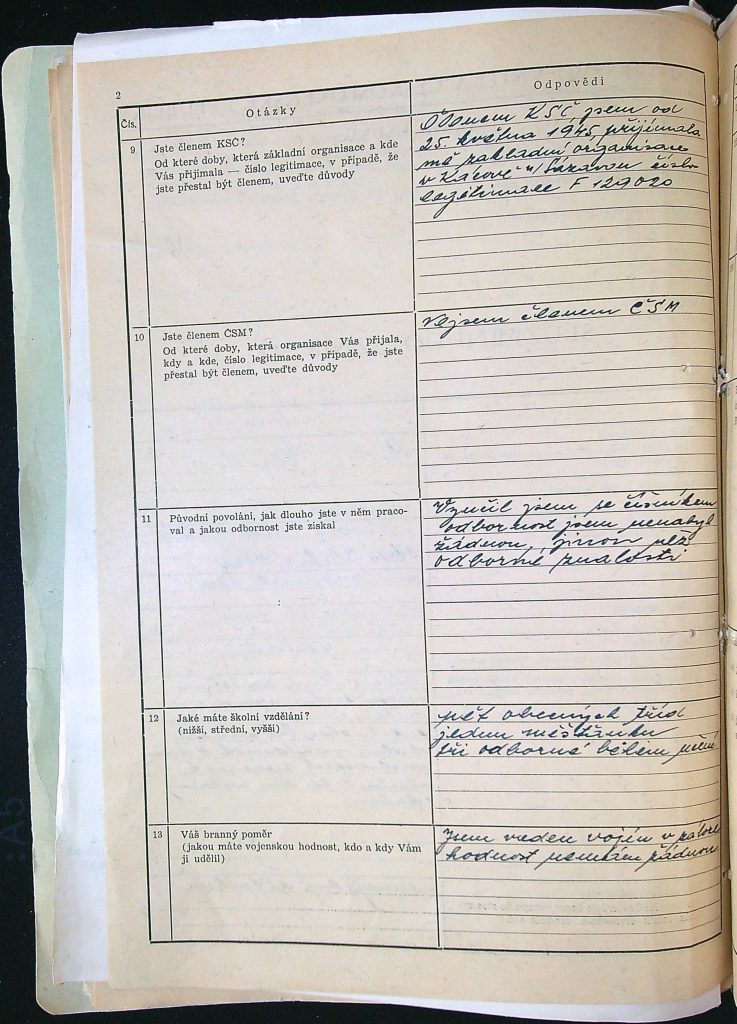 2
Čís.
Otázky
Odpovědi
9
Jste členem KSČ?
Od které doby, která základní organisace a kde
Vás přijímala — číslo legitimace, v případě, že
jste přestal být členem, uveďte důvody
Členem KSČ jsem od
25. května 1945 přijímala
mě zakladní organisace
v Kácově n/Sázavou číslo
legitimace F 129020
10
Jste členem ČSM?
Od které doby, která organisace Vás přijala,
kdy a kde, číslo legitimace, v případě, že jste
přestal být členem, uveďte důvody
Nejsem členem ČSM
11
Původní povolání, jak dlouho jste v něm praco-
val a jakou odbornost jste získal
Vyučil jsem se číšníkem
odbornost jsem nenabyl
žádnou, jinou než
odborné znalosti
12
Jaké máte školní vzdělání?
(nižší, střední, vyšší)
pět obecných tříd
jednu měšťanku
tři odborné během učení
13
Váš branný poměr
(jakou máte vojenskou hodnost, kdo a kdy Vám
ji udělil)
Jsem veden vojín v záloze
hodnost nemám žádnou